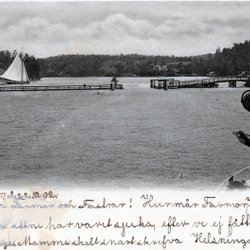 22.10.02.
Farmor och Fastrar! Hur mår Farmor
har varit sjuka, efter vi ej fått
Mamma skall snart skrifva Helsning